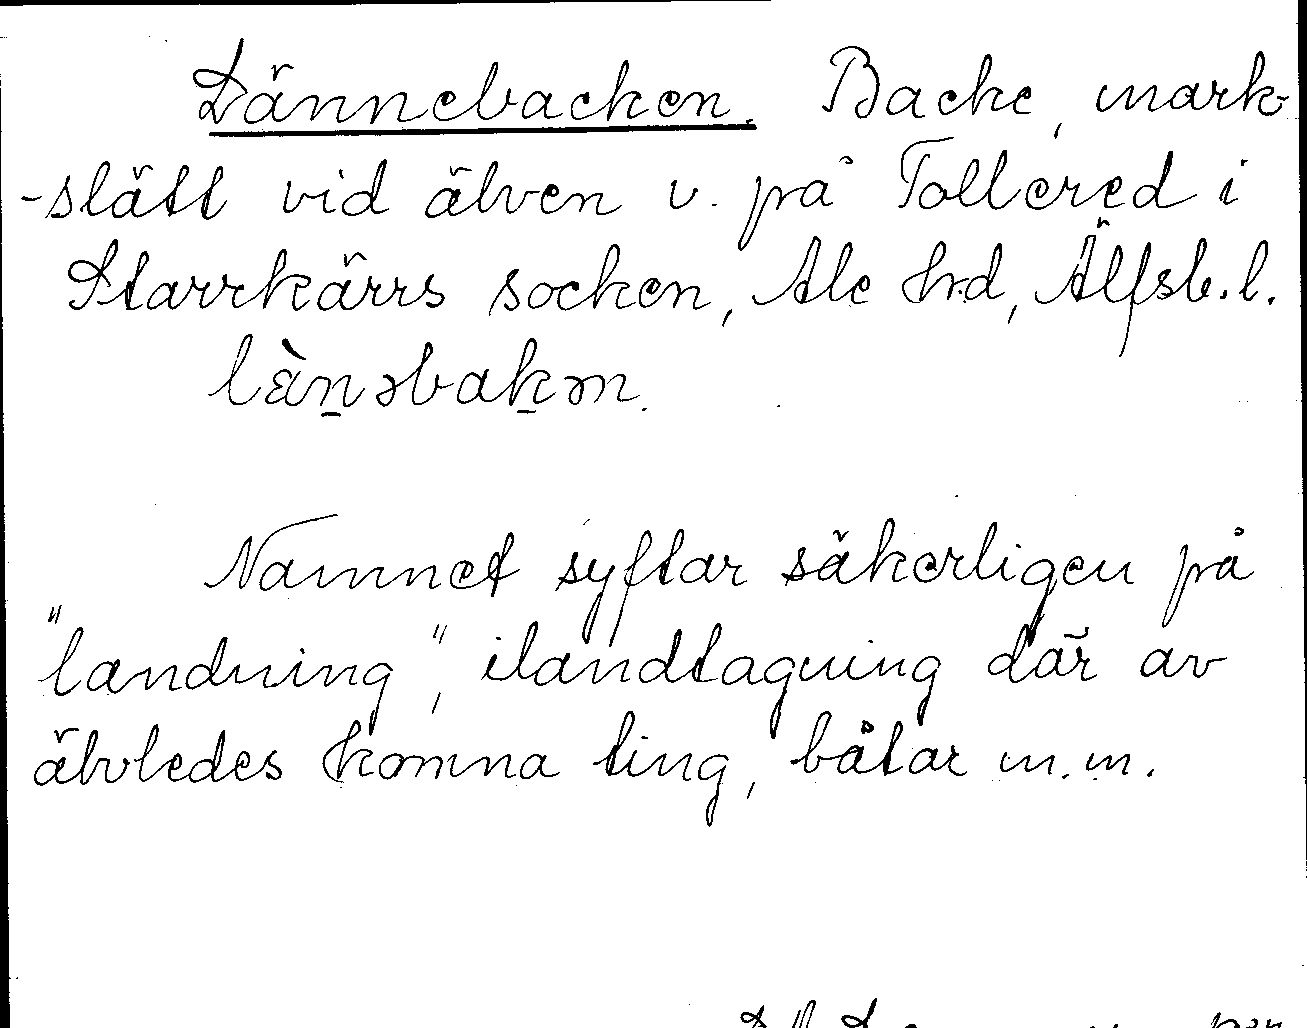 Lännebacken. Backe, mark-
-slätt vid älven v. på Tollered i
Starrkärrs socken, Ale hd, Älfsb. l.
lὲn̠əbak̠ən.
Namnet syftar säkerligen på
"landning", ilandtagning där av
älvledes komna ting, båtar m.m.